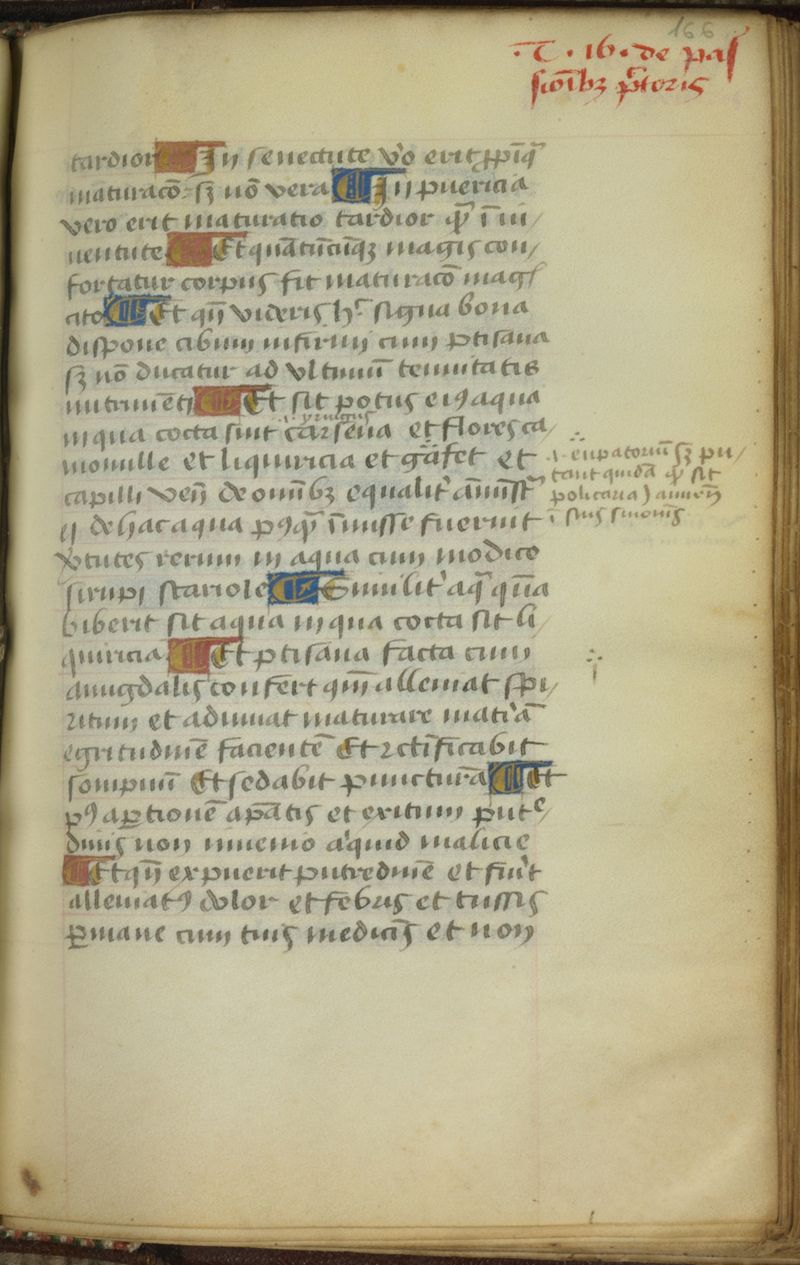 166
.T. 16. de pas
sioībꝫ pc̄toris
tardior ¶ In senectute v̊o erit ꝓpīqͣ
maturacō. sꝫ nō vera ¶ In puericia
vero erit maturatio tardior qͣ ī iu/
uentute ¶ Et quātūcūqꝫ magis con/
fortatur corpus fit maturacō magꝭ
cito ¶ Et qn̄ videris hͨ signa bona
dispone cibum infirmi cum ptisana
sꝫ nō ducatur ad vltimū tenuitatis
nutrimēti ¶ Et sit potus eiꝯ aqua
in qua cocta sint carsena et flores ca/
momille et liquiricia et gāfet et
capilli Ven̄ de omībꝫ equalit͛ āmīstͬ
ej de hac aqua pꝯqͣ īmisse fuerint
v̓tutes rerum in aqua cum modico
sirupi stariole ¶ Similit͛ aqͣ quā
biberit sit aqua in qua cocta sit li/
quiricia ¶ Et ptisana facta cum
amigdalis confert qm̄ alleuiat spi/
ritum et adiuuat maturare mat͛iā
egritudinē facientē Et rctīficabit
sompnū Et sedabit puncturā ¶ Et
pꝯ aꝑtionē apāt̄is et exitum putͤ
dinis non inuenio a͛quid malicie
¶ Et qn̄ expuerit putredinē et fiu͛t
alleuiatꝯ dolor et febris et tussis
ꝑmane cum tuis medicīs et non
.i. eupatoriū sꝫ pu/
tant quidā qͩ sit
policaria) auicen̄
ī suis sinonīs